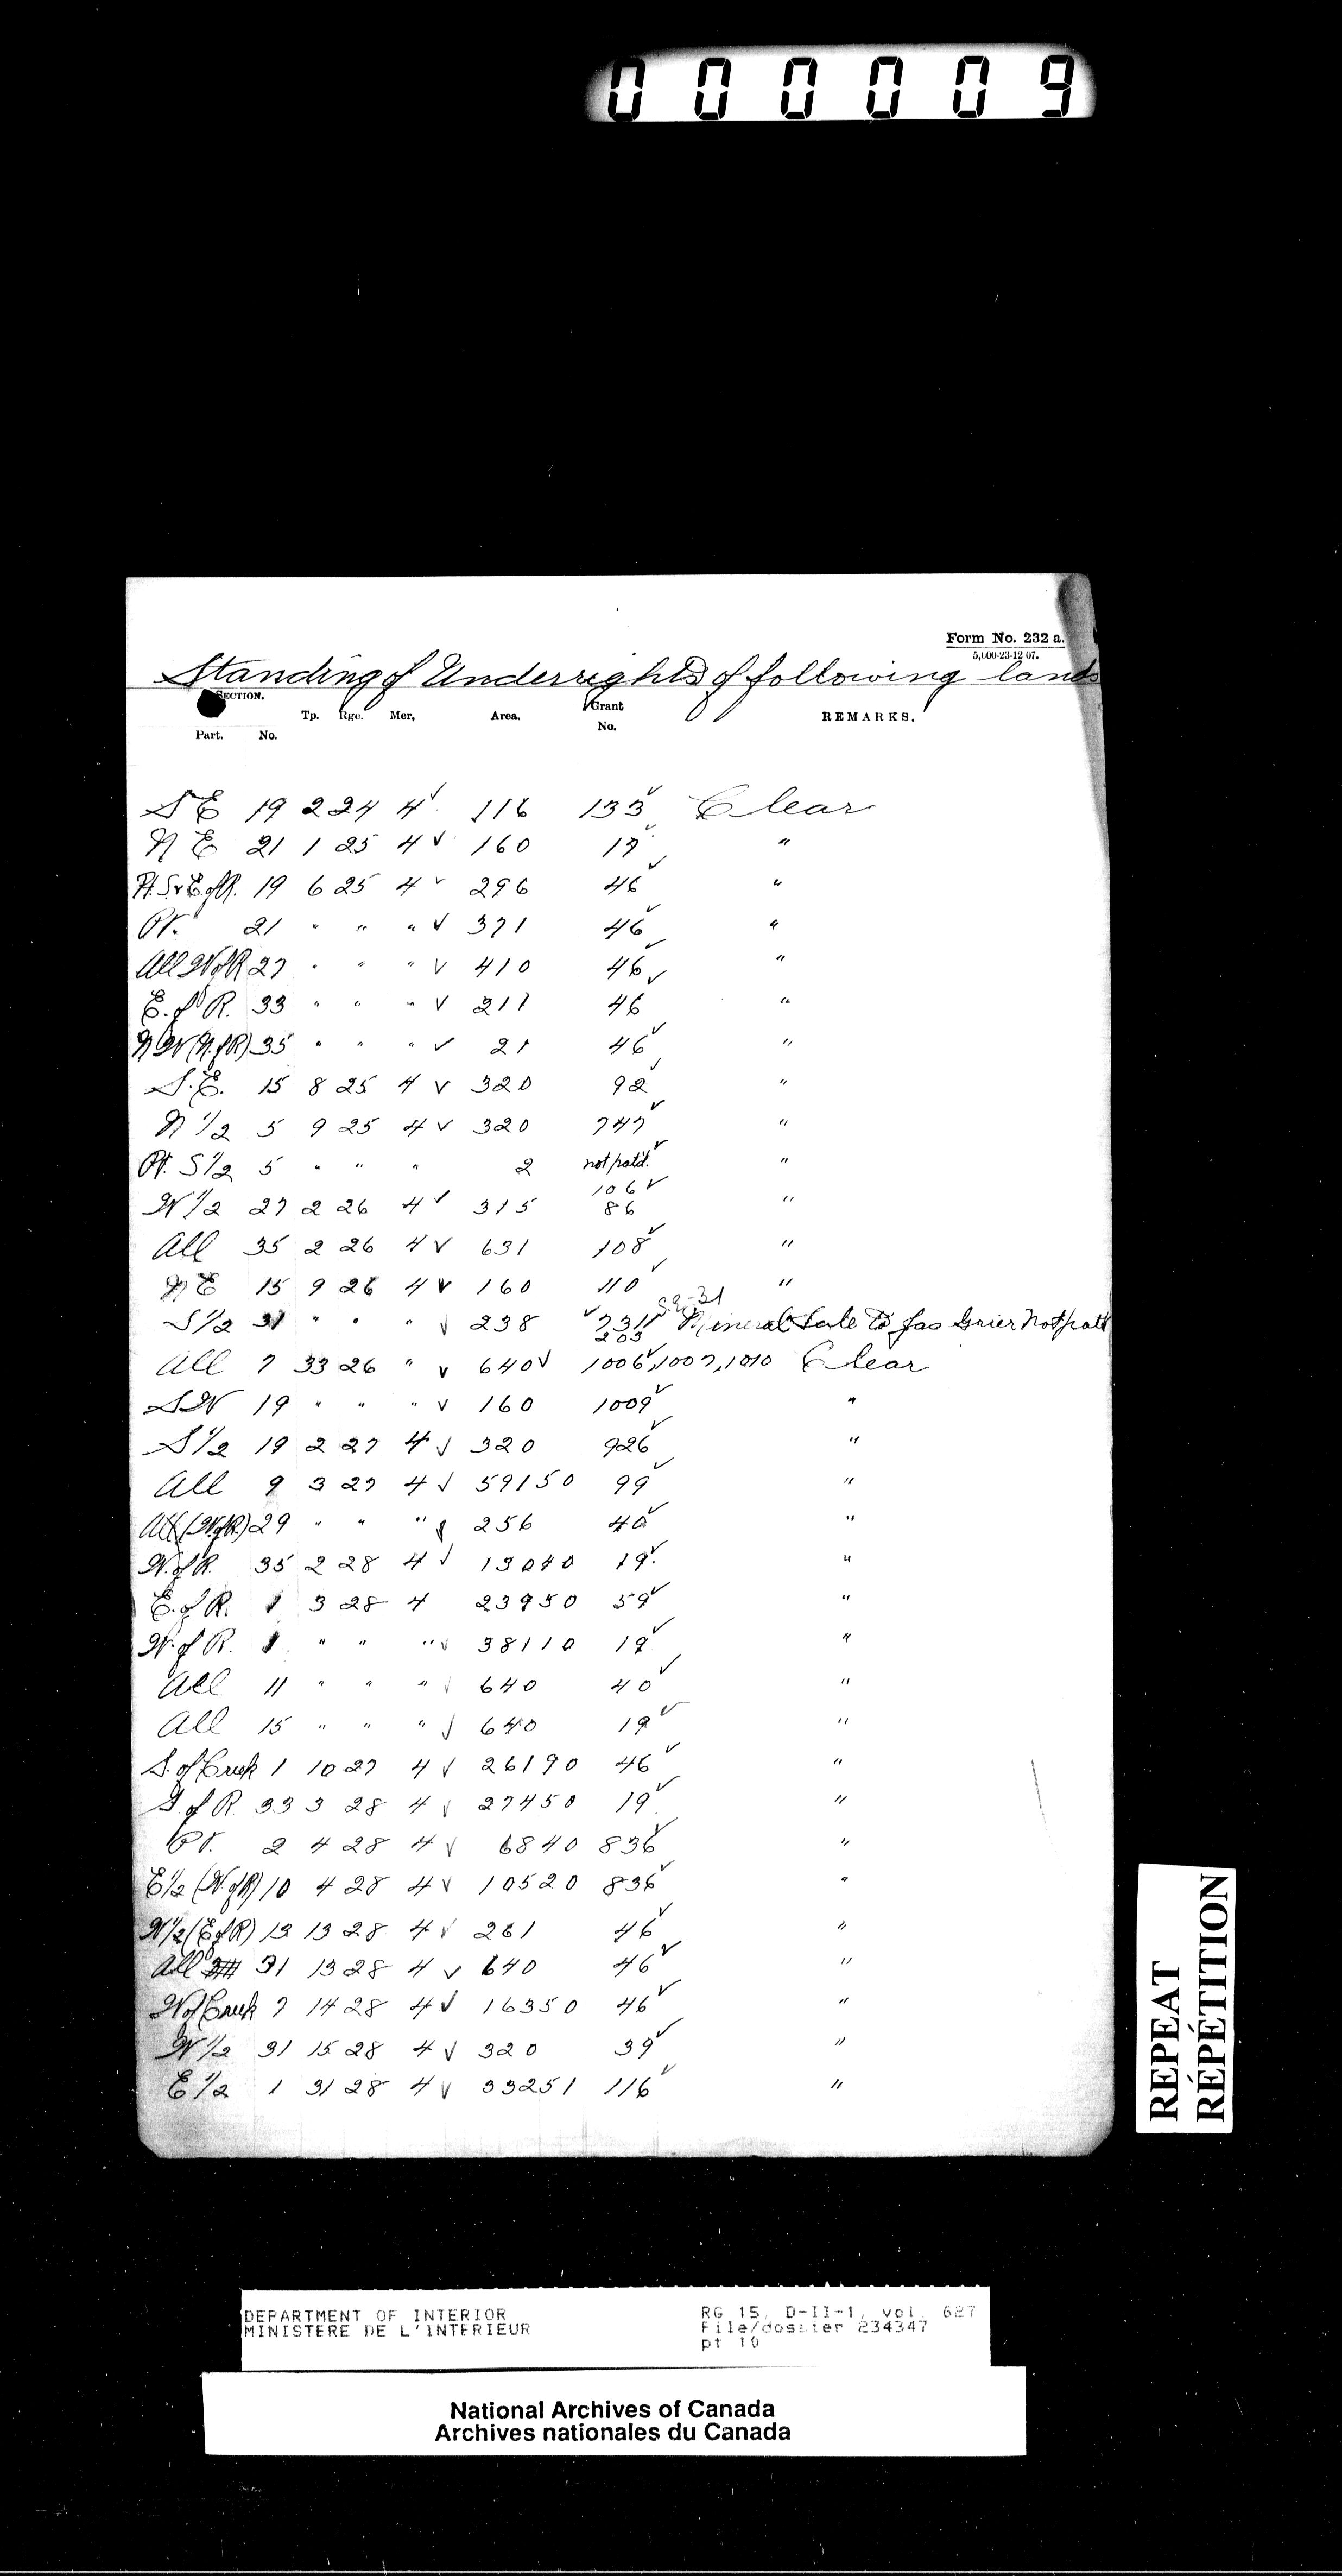 000009
Form No. 232 a.
5,000-23-12 07.
Standing of Underrights of following lands
SECTION.
Part. No. Tp. Rge. Mer. Area. Grant No. REMARKS.
S E 19 2 24 4 ✓ 116 133 ✓ Clear
N E 21 1 25 4 ✓ 160 17 ✓ "
Pt. S. & E. of R. 19 6 25 4 ✓ 296 46 ✓ "
Pt. 21 " " " ✓ 371 46 ✓ "
All W of R 27 " " " ✓ 410 46 ✓ "
E. of R. 33 " " " ✓ 211 46 ✓ "
N W (N. of R) 35 " " " ✓ 21 46 ✓ "
S. E. 15 8 25 4 ✓ 320 92 ✓ "
N 1/2 5 9 25 4 ✓ 320 747 ✓ "
Pt. S 1/2 5 " " " 2 not patd. ✓ "
W 1/2 27 2 26 4 ✓ 315 106 ✓ 86 "
All 35 2 26 4 ✓ 631 108 ✓ "
N E 15 9 26 4 ✓ 160 110 ✓ "
S 1/2 31 " " " ✓ 238 ✓ 7311 203 S.E-31 Mineral Sale to Jas Grier Not patd
All 7 33 26 " ✓ 640 ✓ 1006 ✓, 1007, 1010 Clear
S W 19 " " " ✓ 160 1009 ✓ "
S 1/2 19 2 27 4 ✓ 320 926 ✓ "
All 9 3 27 4 ✓ 591 50 99 ✓ "
All (W. of R.) 29 " " " ✓ 256 40 ✓ "
W. of R. 35 2 28 4 ✓ 130 40 19 ✓ "
E. of R. 1 3 28 4 239 50 59 ✓ "
W. of R. 1 " " " ✓ 381 10 19 ✓ "
All 11 " " " ✓ 640 40 ✓ "
All 15 " " " ✓ 640 19 ✓ "
S. of Creek 1 10 27 4 ✓ 261 90 46 ✓ "
S. of R. 33 3 28 4 ✓ 274 50 19 ✓ "
Pt. 2 4 28 4 ✓ 68 40 836 ✓ "
E 1/2 (W of R) 10 4 28 4 ✓ 105 20 836 ✓ "
W 1/2 (E of R) 13 13 28 4 ✓ 261 46 ✓ "
All 31 13 28 4 ✓ 640 46 ✓ "
W of Creek 7 14 28 4 ✓ 163 50 46 ✓ "
W 1/2 31 15 28 4 ✓ 320 39 ✓ "
E 1/2 1 31 28 4 ✓ 332 51 116 ✓ "
REPEAT
RÉPÉTITION
DEPARTMENT OF INTERIOR
MINISTERE DE L'INTERIEUR
RG 15, D-II-1, vol. 627
File/dossier 234347
pt 10
National Archives of Canada
Archives nationales du Canada